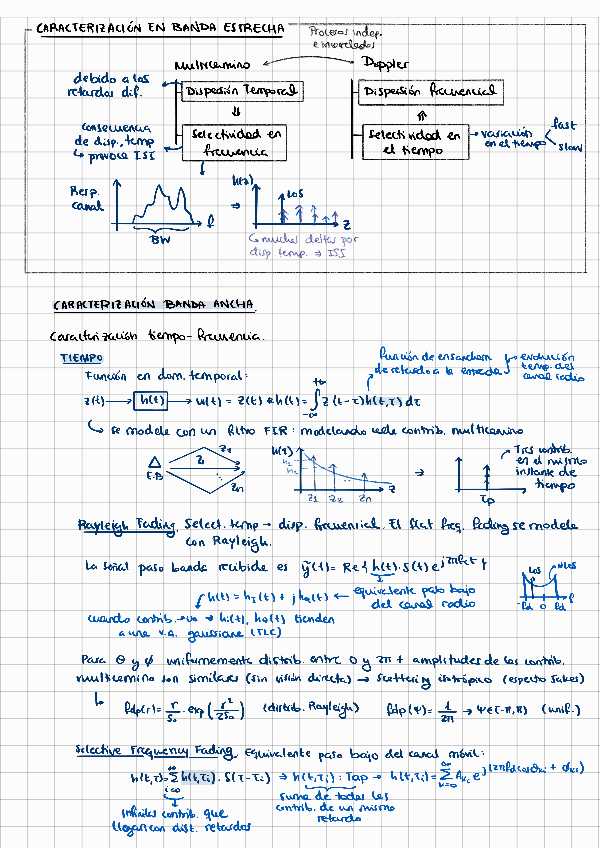 CARACTERIZACIÓN EN BANDA ESTRECHA
Procesos indep.
e interrelados
Multicamino
Doppler
debido a los
retardos dif.
Dispersión Temporal
Dispersión frecuencial
consecuencia
de disp. temp
↳ provoca ISI
Selectividad en
frecuencia
Selectividad en
el tiempo
→ variación
en el tiempo
fast
slow
Resp.
canal
f
BW
⇒
h(z)
LOS
z
↳ muchas deltas por
disp temp. ⇒ ISI
CARACTERIZACIÓN BANDA ANCHA.
Caracterización tiempo-frecuencia.
TIEMPO
función de ensancham
de retardo a la entrada
evolución
temp. del
canal radio
Función en dom. temporal:
z(t) → h(t) → w(t) = z(t) * h(t) = ∫ z(t-τ) h(t,τ) dτ
+∞
-∞
↳ se modela con un filtro FIR: modelando cada contrib. multicamino
E.B
z₁
z₂
zₙ
h(z)
h₁
h₂
z₁ z₂ zₙ z
→
τp
Tres contrib.
en el mismo
instante de
tiempo
Rayleigh Fading. Select. temp → disp. frecuencial. El flat freq. fading se modela
con Rayleigh.
La señal paso banda recibida es ỹ(t) = Re{h(t)·s(t) e^{j2πfct}}
h(t) = h_I(t) + j h_Q(t) ← equivalente paso bajo
del canal radio
LOS
NLOS
-fd 0 fd f
cuando contrib. → ∞ → h_I(t), h_Q(t) tienden
a una v.a. gaussiana (TLC)
Para θ y φ uniformemente distrib. entre 0 y 2π + amplitudes de las contrib.
multicamino son similares (sin visión directa) → scattering isotrópico (espectro Jakes)
↳ fdp(r) = r/S₀ · exp(r²/2S₀) (distrib. Rayleigh) fdp(ψ) = 1/2π → ψ∈[-π,π] (unif.)
Selective Frequency Fading. Equivalente paso bajo del canal móvil:
h(t,τ) = Σ_{i=0}^{∞} h(t,τᵢ) · δ(τ-τᵢ) ⇒ h(t,τᵢ): Tap → h(t,τᵢ) = Σ_{k=0}^{∞} A_{ki} e^{j(2πfd cosθ_{ki} + φ_{ki})}
Infinitas contrib. que
llegan con dist. retardos
suma de todas las
contrib. de un mismo
retardo